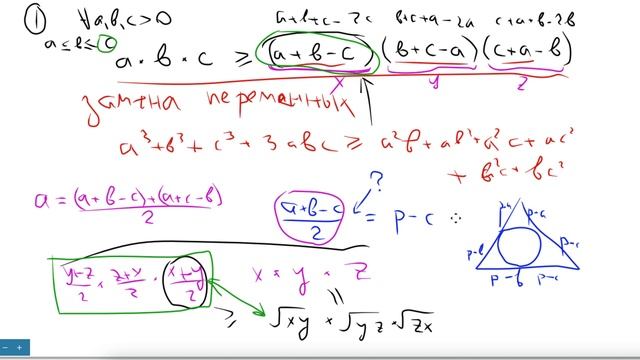 ① ∀a,b,c>0
a+b+c-2c b+c+a-2a c+a+b-2b
a≤b≤c
a·b·c ≥ (a+b-c)(b+c-a)(c+a-b)
x y z
замена переменных
a³+b³+c³+3abc ≥ a²b+ab²+a²c+ac²
+b²c+bc²
a=((a+b-c)+(a+c-b))/2
?
(a+b-c)/2 = p-c
p-a p-a
p-b p-c
p-b p-c
(y+z)/2 · (z+x)/2 · (x+y)/2 x·y·z
≥ √xy · √yz · √zx